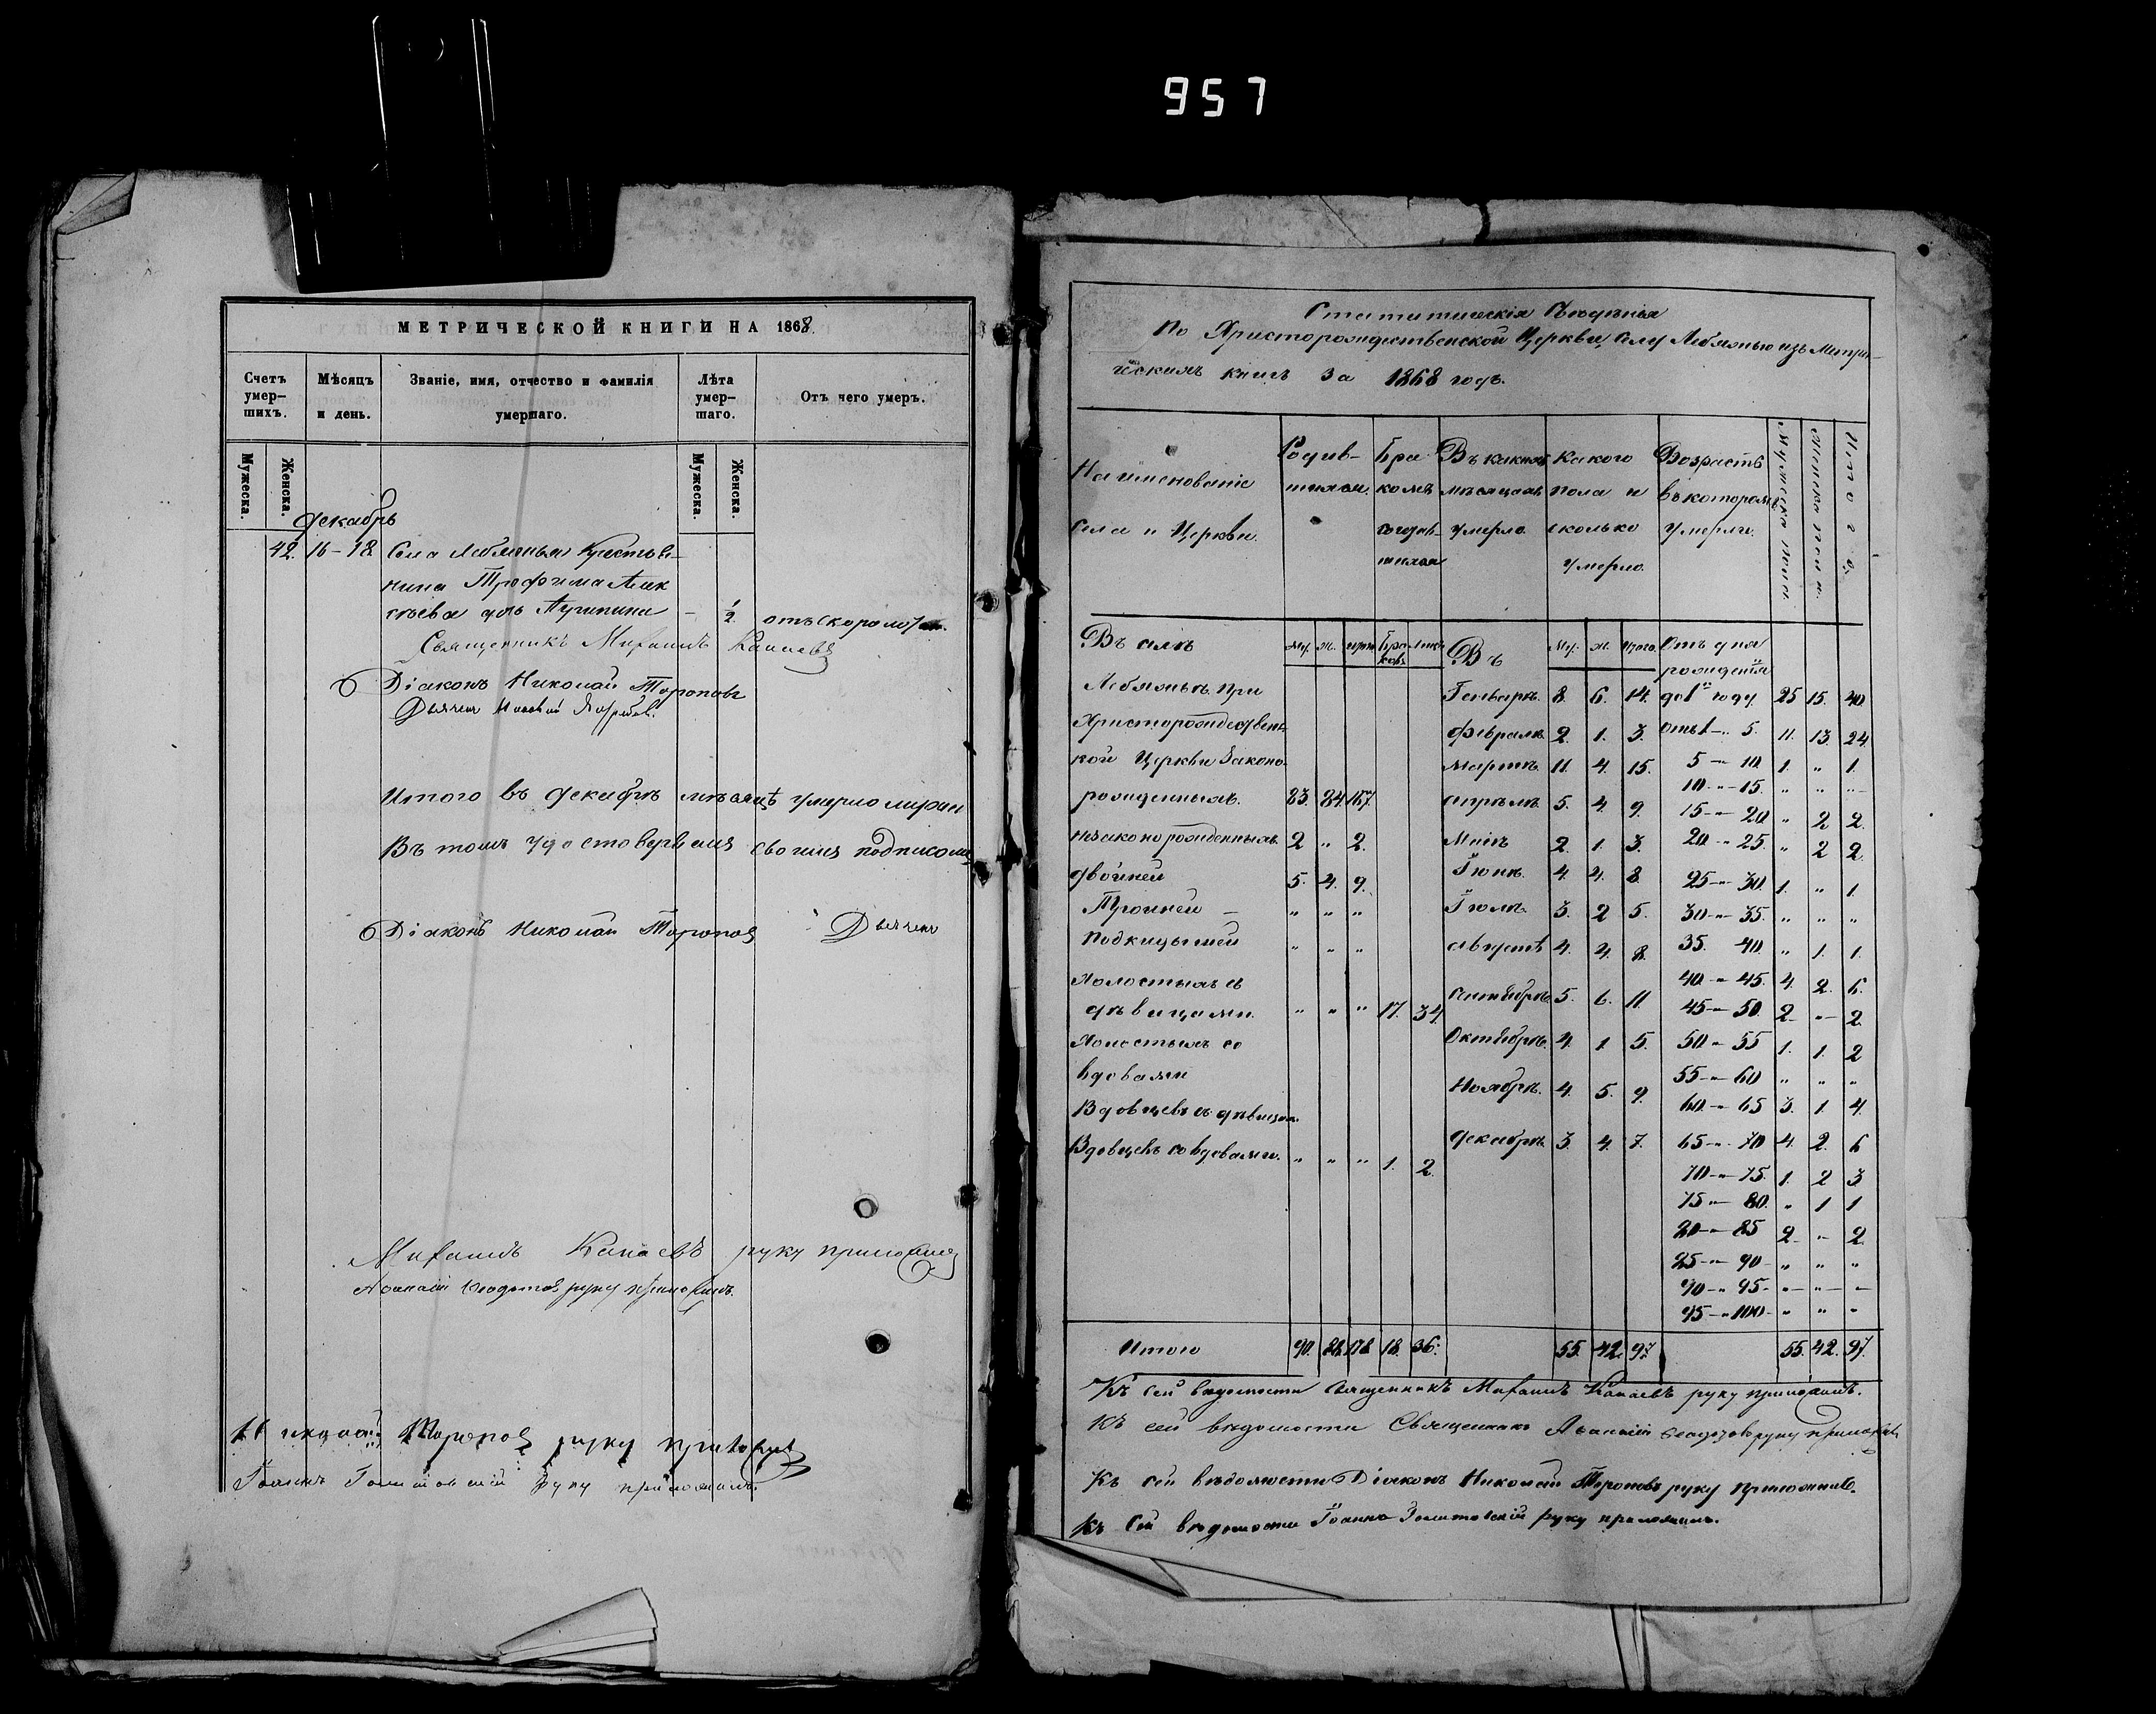 957
МЕТРИЧЕСКОЙ КНИГИ НА 1868.
Счетъ умер-шихъ.
Мѣсяцъ и день.
Званіе, имя, отчество и фамилія умершаго.
Лѣта умер-шаго.
Отъ чего умеръ.
Мужеска.
Женска.
Мужеска.
Женска.
Декабрь
42. 16-18. Села Лебяжья Крестья-
нина Трофима Алек
сѣева дочь - 1/2
Священникъ Михаилъ Канаевъ
Діаконъ Николай Тороповъ
Дьячекъ
Итого въ Декабрѣ мѣсяцѣ умерло
Въ томъ удостовѣряемъ своимъ подписомъ
Діаконъ Николай Тороповъ Дьячекъ
Михаилъ Канаевъ руку приложилъ
руку приложилъ.
Николай Тороповъ руку приложилъ
руку приложилъ.
Статистическія Свѣденія
По Христорождественской Церкви, Селу Лебяжью изъ Метри-
ческихъ книгъ за 1868 годъ.
Наименованіе
села и Церкви.
Родив-
шихся.
Бра
комъ
сочетав-
шихся
Въ какихъ
мѣсяцахъ
умерло.
какого
пола и
сколько
умерло.
Возрастъ
въ которомъ
умерли.
Мужеска пола
Женска пола.
Итого
Въ селѣ Му. Ж. Итого Бра ковъ Лицъ Въ Му. Ж. Итого. Отъ дня
рожденія
Лебяжьѣ при Генварѣ. 8. 6. 14. до 1го году. 25 15. 40
Христорождествен- Февралѣ 2. 1. 3. отъ 1 - 5. 11. 13. 24
ской Церкви Законо- Мартѣ. 11. 4. 15. 5 - 10 1. " 1.
10 - 15. " " "
рожденныхъ. 83. 84. 167. апрѣлѣ 5. 4. 9. 15 - 20 " 2 2.
незаконорожденныхъ 2 " 2. Маіѣ 2. 1. 3. 20 - 25. " 2 2.
двойней 5. 4. 9. Іюнѣ. 4. 4. 8. 25 - 30. 1. " 1.
Тройней - " " " Іюлѣ. 3. 2 5. 30 - 35. " " "
Подкидышей " " " августѣ 4. 4. 8. 35. 40. " 1. 1.
Холостыхъ съ 40 - 45. 4. 2. 6.
дѣвицами. " " " 17. 34. Сентябрѣ. 5. 6. 11. 45 - 50 2 " 2.
Холостыхъ со Октябрѣ. 4. 1. 5. 50 - 55 1. 1. 2
вдовами 55 - 60 " " "
Вдовцевъ съ дѣвицам. Ноябрѣ. 4. 5. 9. 60 - 65 3. 1. 4.
Вдовцевъ со вдовами. " " " 1. 2. Декабрѣ 3 4. 7. 65 - 70 4. 2. 6
70 - 75. 1. 2 3
75 - 80. " 1 1
20 - 85 2 " 2.
25 - 90 " " "
90 - 95 - " - " -
95 - 100 - " " "
Итого 90. 88. 178. 18. 36. 55. 42. 97. 55. 42. 97.
Къ сей вѣдомости Священникъ Михаилъ Канаевъ руку приложилъ.
Къ сей вѣдомости Священникъ руку приложилъ
Къ сей вѣдомости Діаконъ Николай Тороповъ руку приложилъ.
Къ сей вѣдомости Іоаннъ руку приложилъ.